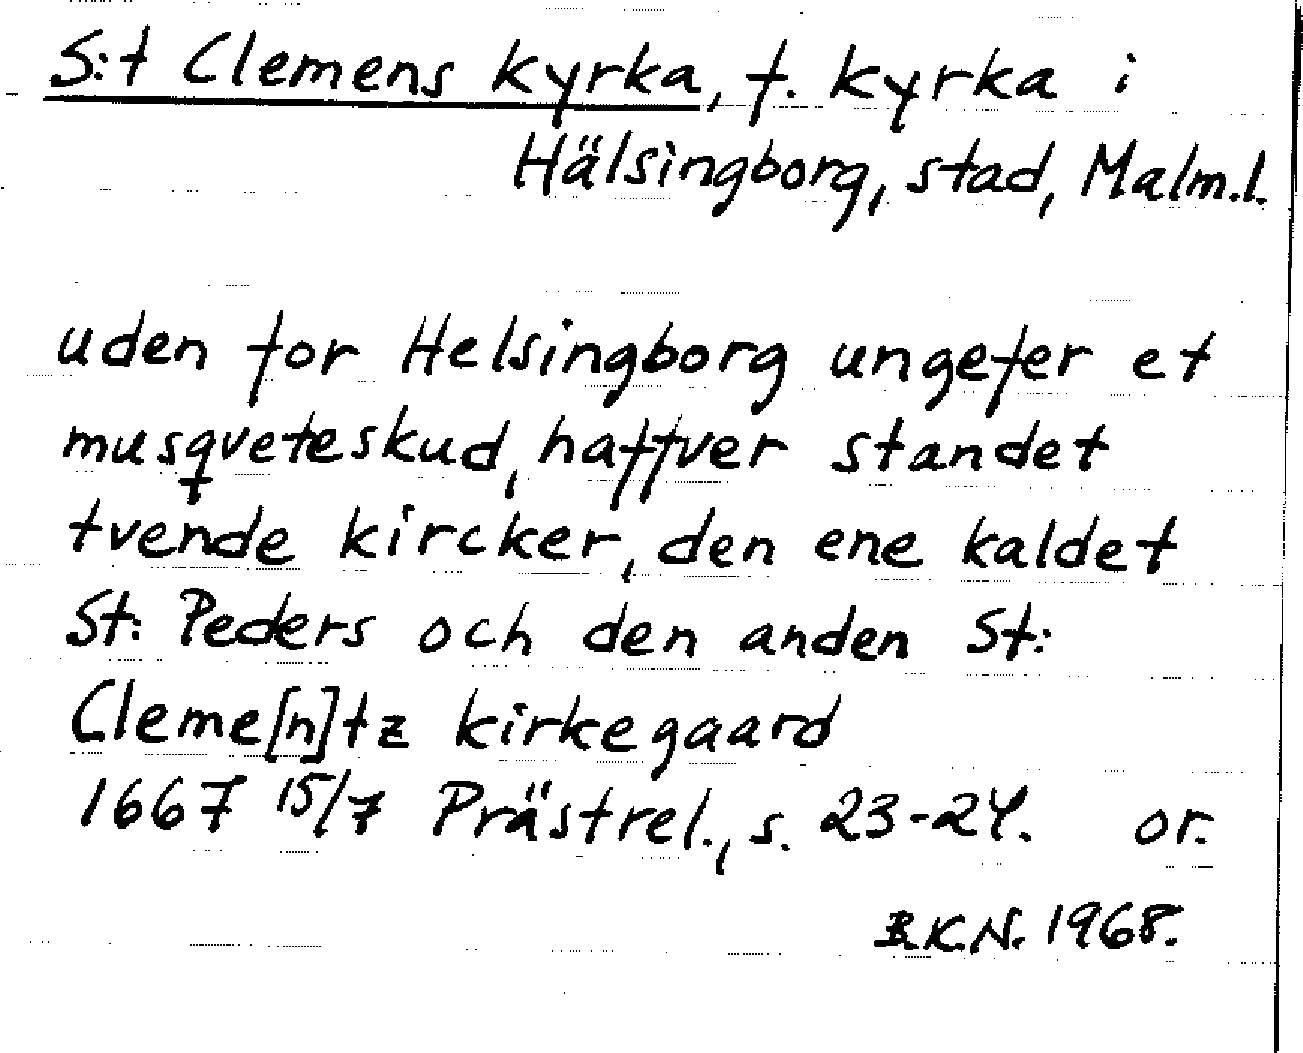 S:t Clemens kyrka, f. kyrka i
Hälsingborg, stad, Malm.l.
uden for Helsingborg ungefer et
musqveteskud, haffver standet
tvende kircker, den ene kaldet
St: Peders och den anden St:
Cleme[n]tz kirkegaard
1667 15/7 Prästrel., s. 23-24. or.
B.K.N. 1968.